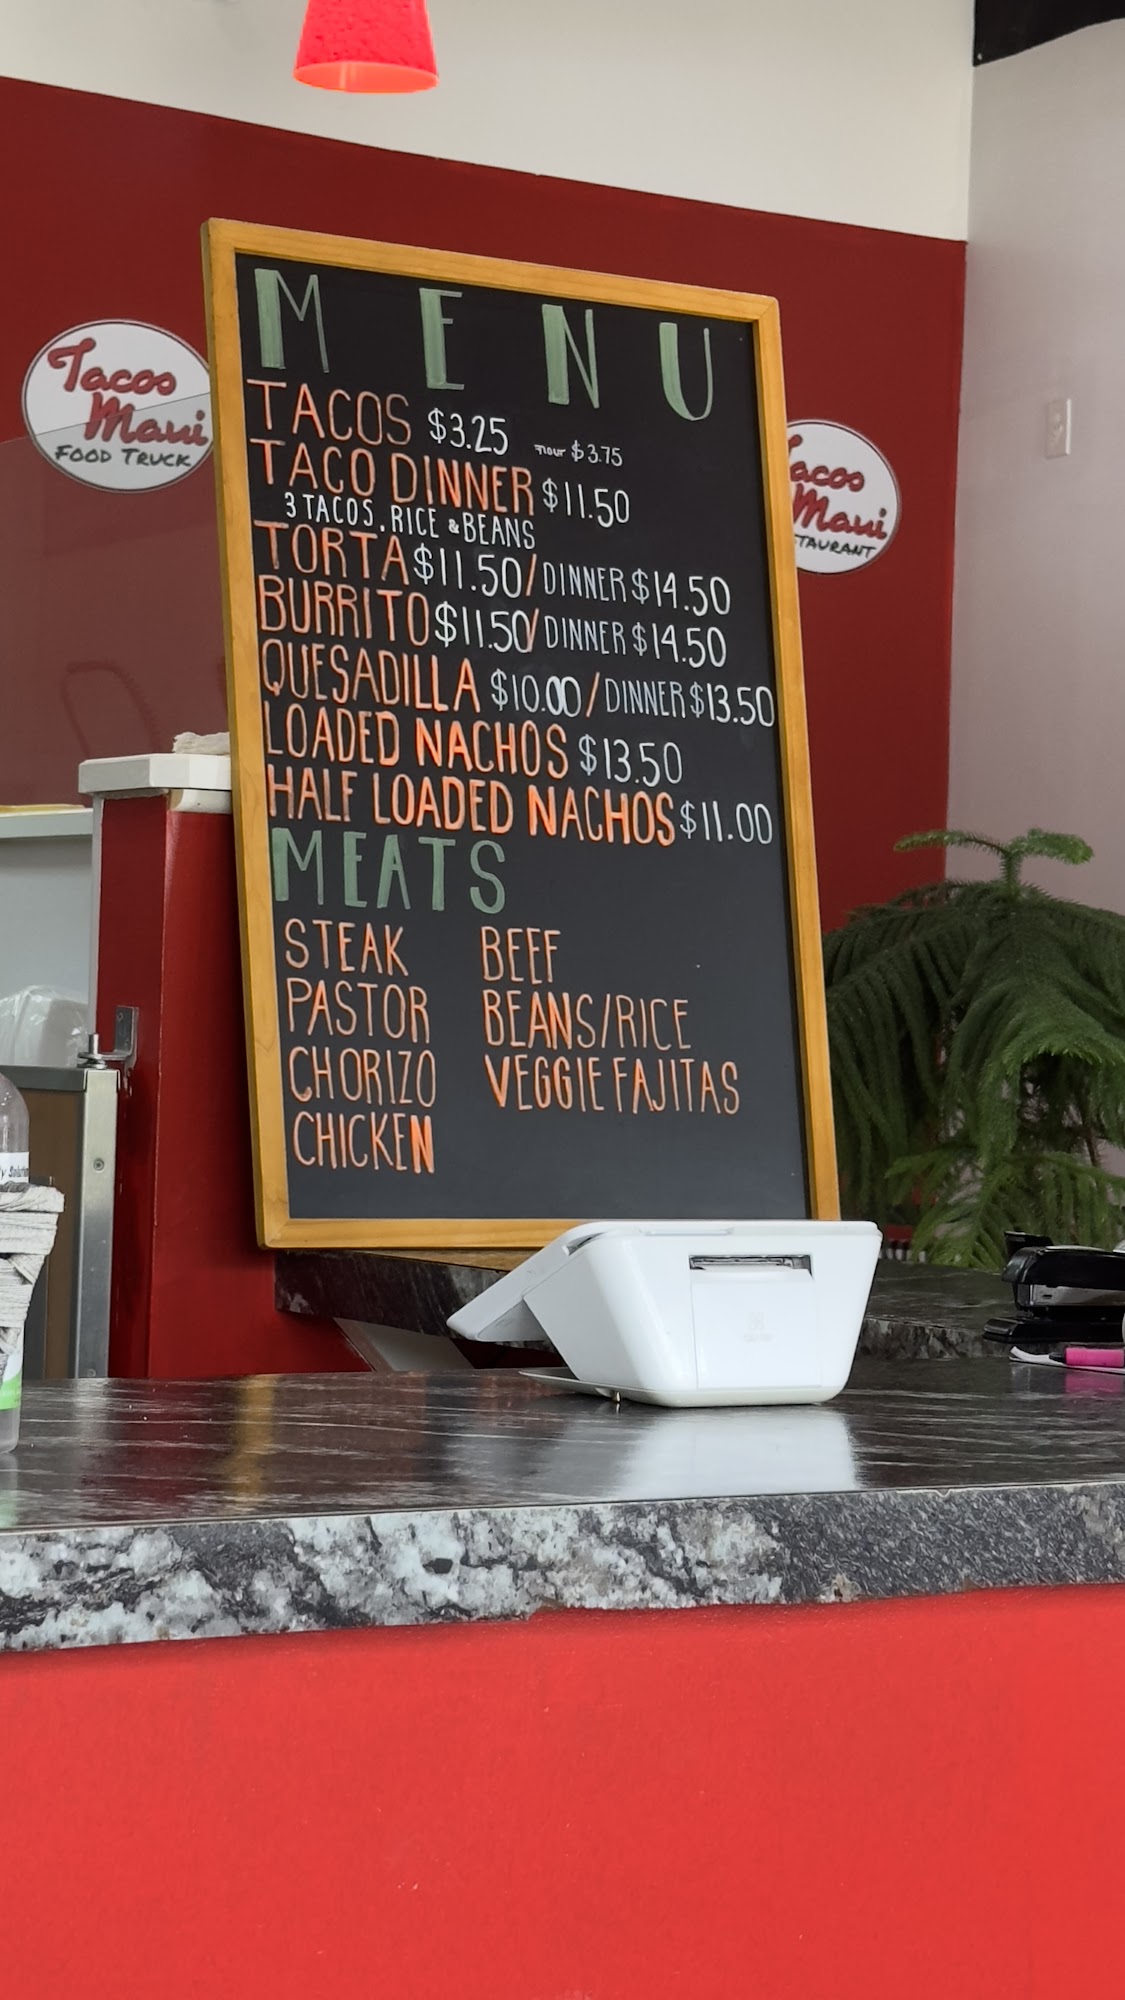 MENU
TACOS $3.25 FLOUR $3.75
TACO DINNER $11.50
3 TACOS, RICE & BEANS
TORTA $11.50/DINNER $14.50
BURRITO $11.50/DINNER $14.50
QUESADILLA $10.00/DINNER $13.50
LOADED NACHOS $13.50
HALF LOADED NACHOS $11.00
MEATS
STEAK BEEF
PASTOR BEANS/RICE
CHORIZO VEGGIE FAJITAS
CHICKEN
Tacos
Maui
FOOD TRUCK
Tacos
Maui
TAURANT